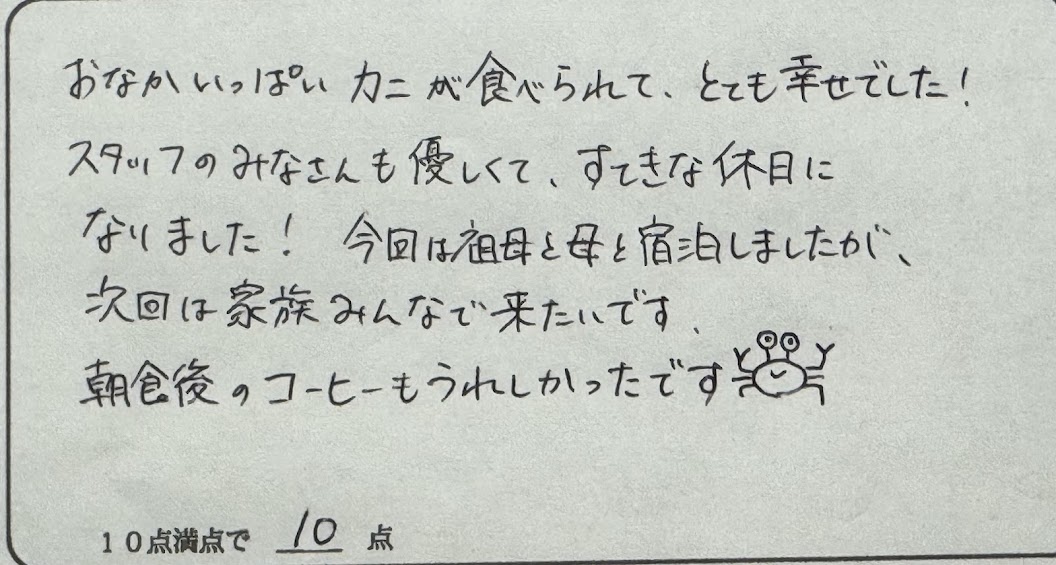 おなかいっぱいカニが食べられて、とても幸せでした！
スタッフのみなさんも優しくて、すてきな休日に
なりました！ 今回は祖母と母と宿泊しましたが、
次回は家族みんなで来たいです、
朝食後のコーヒーもうれしかったです
１０点満点で 10 点